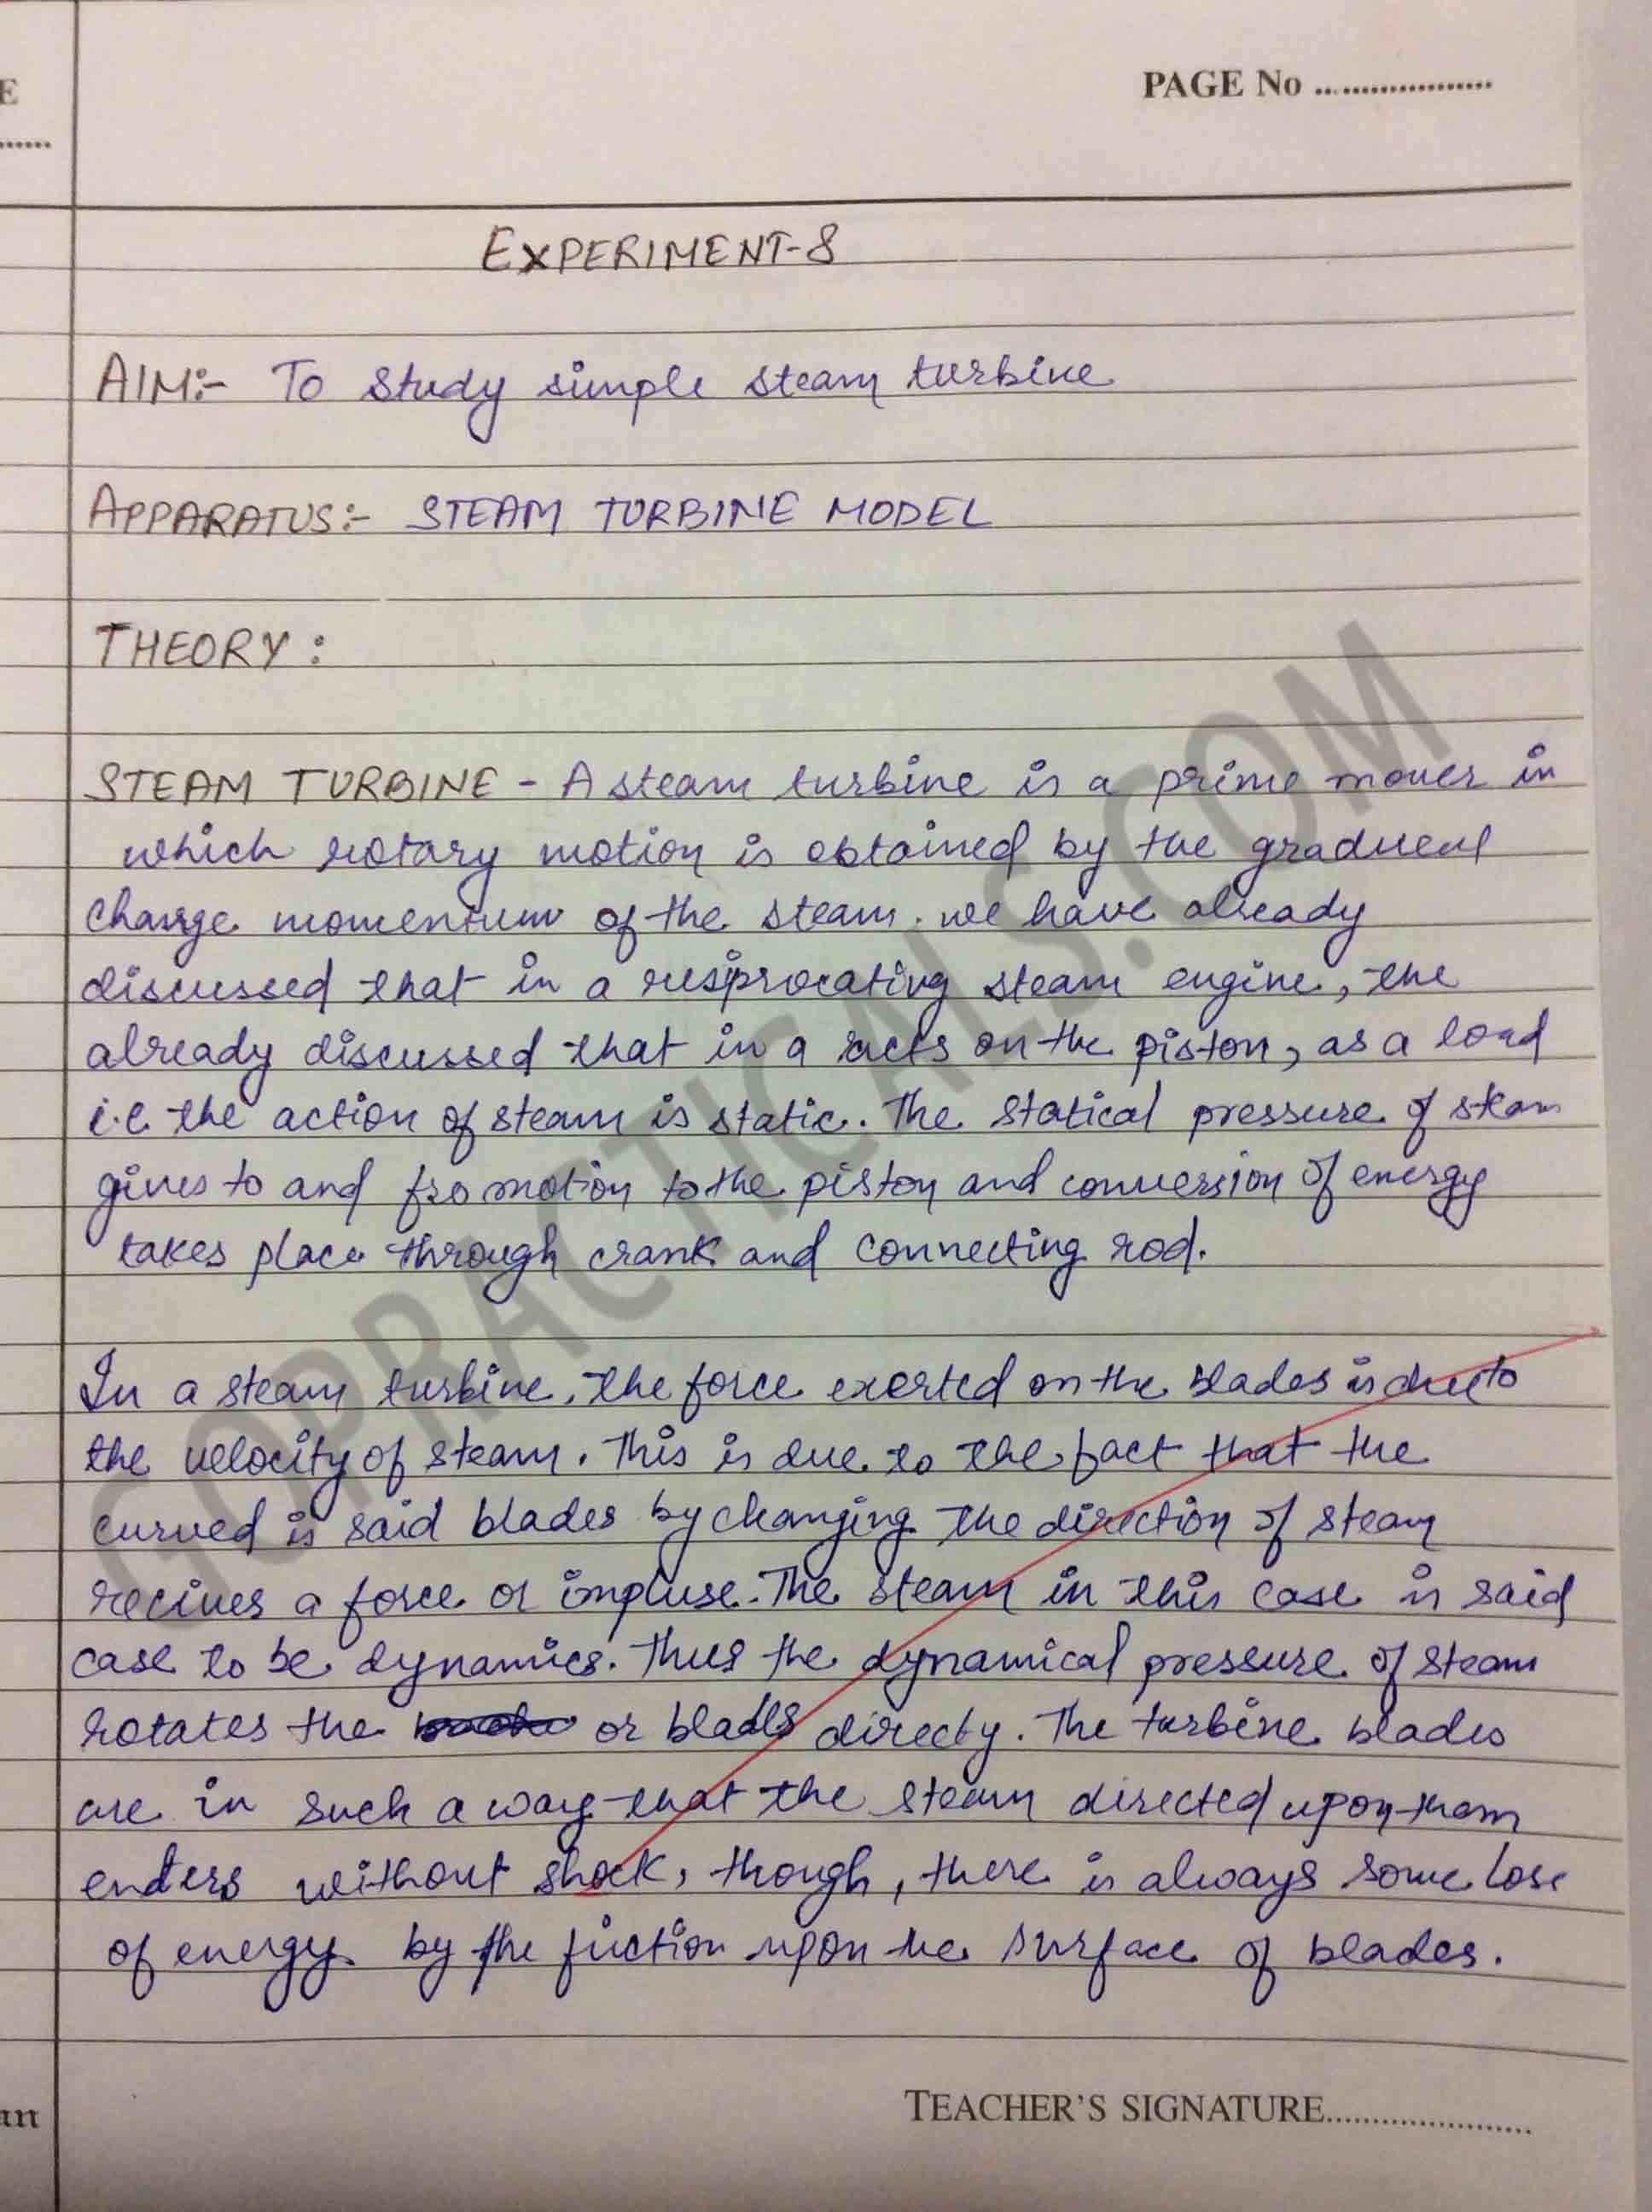 E
PAGE No ..................
......
EXPERIMENT-8
AIM:- To study simple steam turbine
APPARATUS:- STEAM TURBINE MODEL
THEORY :
STEAM TURBINE - A steam turbine is a prime mover in
which rotary motion is obtained by the gradueul
change momentum of the steam. we have already
discussed that in a resiprocating steam engine, the
already discussed that in a acts on the piston, as a load
i.e the action of steam is static. The statical pressure of steam
gives to and fro motion to the piston and conversion of energy
takes place through crank and connecting rod.
In a steam turbine, the force exerted on the blades is due to
the velocity of steam. This is due to the fact that the
curved is said blades by changing the direction of steam
recives a force or impluse. The steam in this case is said
case to be dynamics. Thus the dynamical pressure of steam
rotates the or blades directy. The turbine blades
are in such a way that the steam directed upon them
enters without shock, though, there is always some lose
of energy by the fuction upon the surface of blades.
an
TEACHER'S SIGNATURE......................
GOPRACTICALS.COM